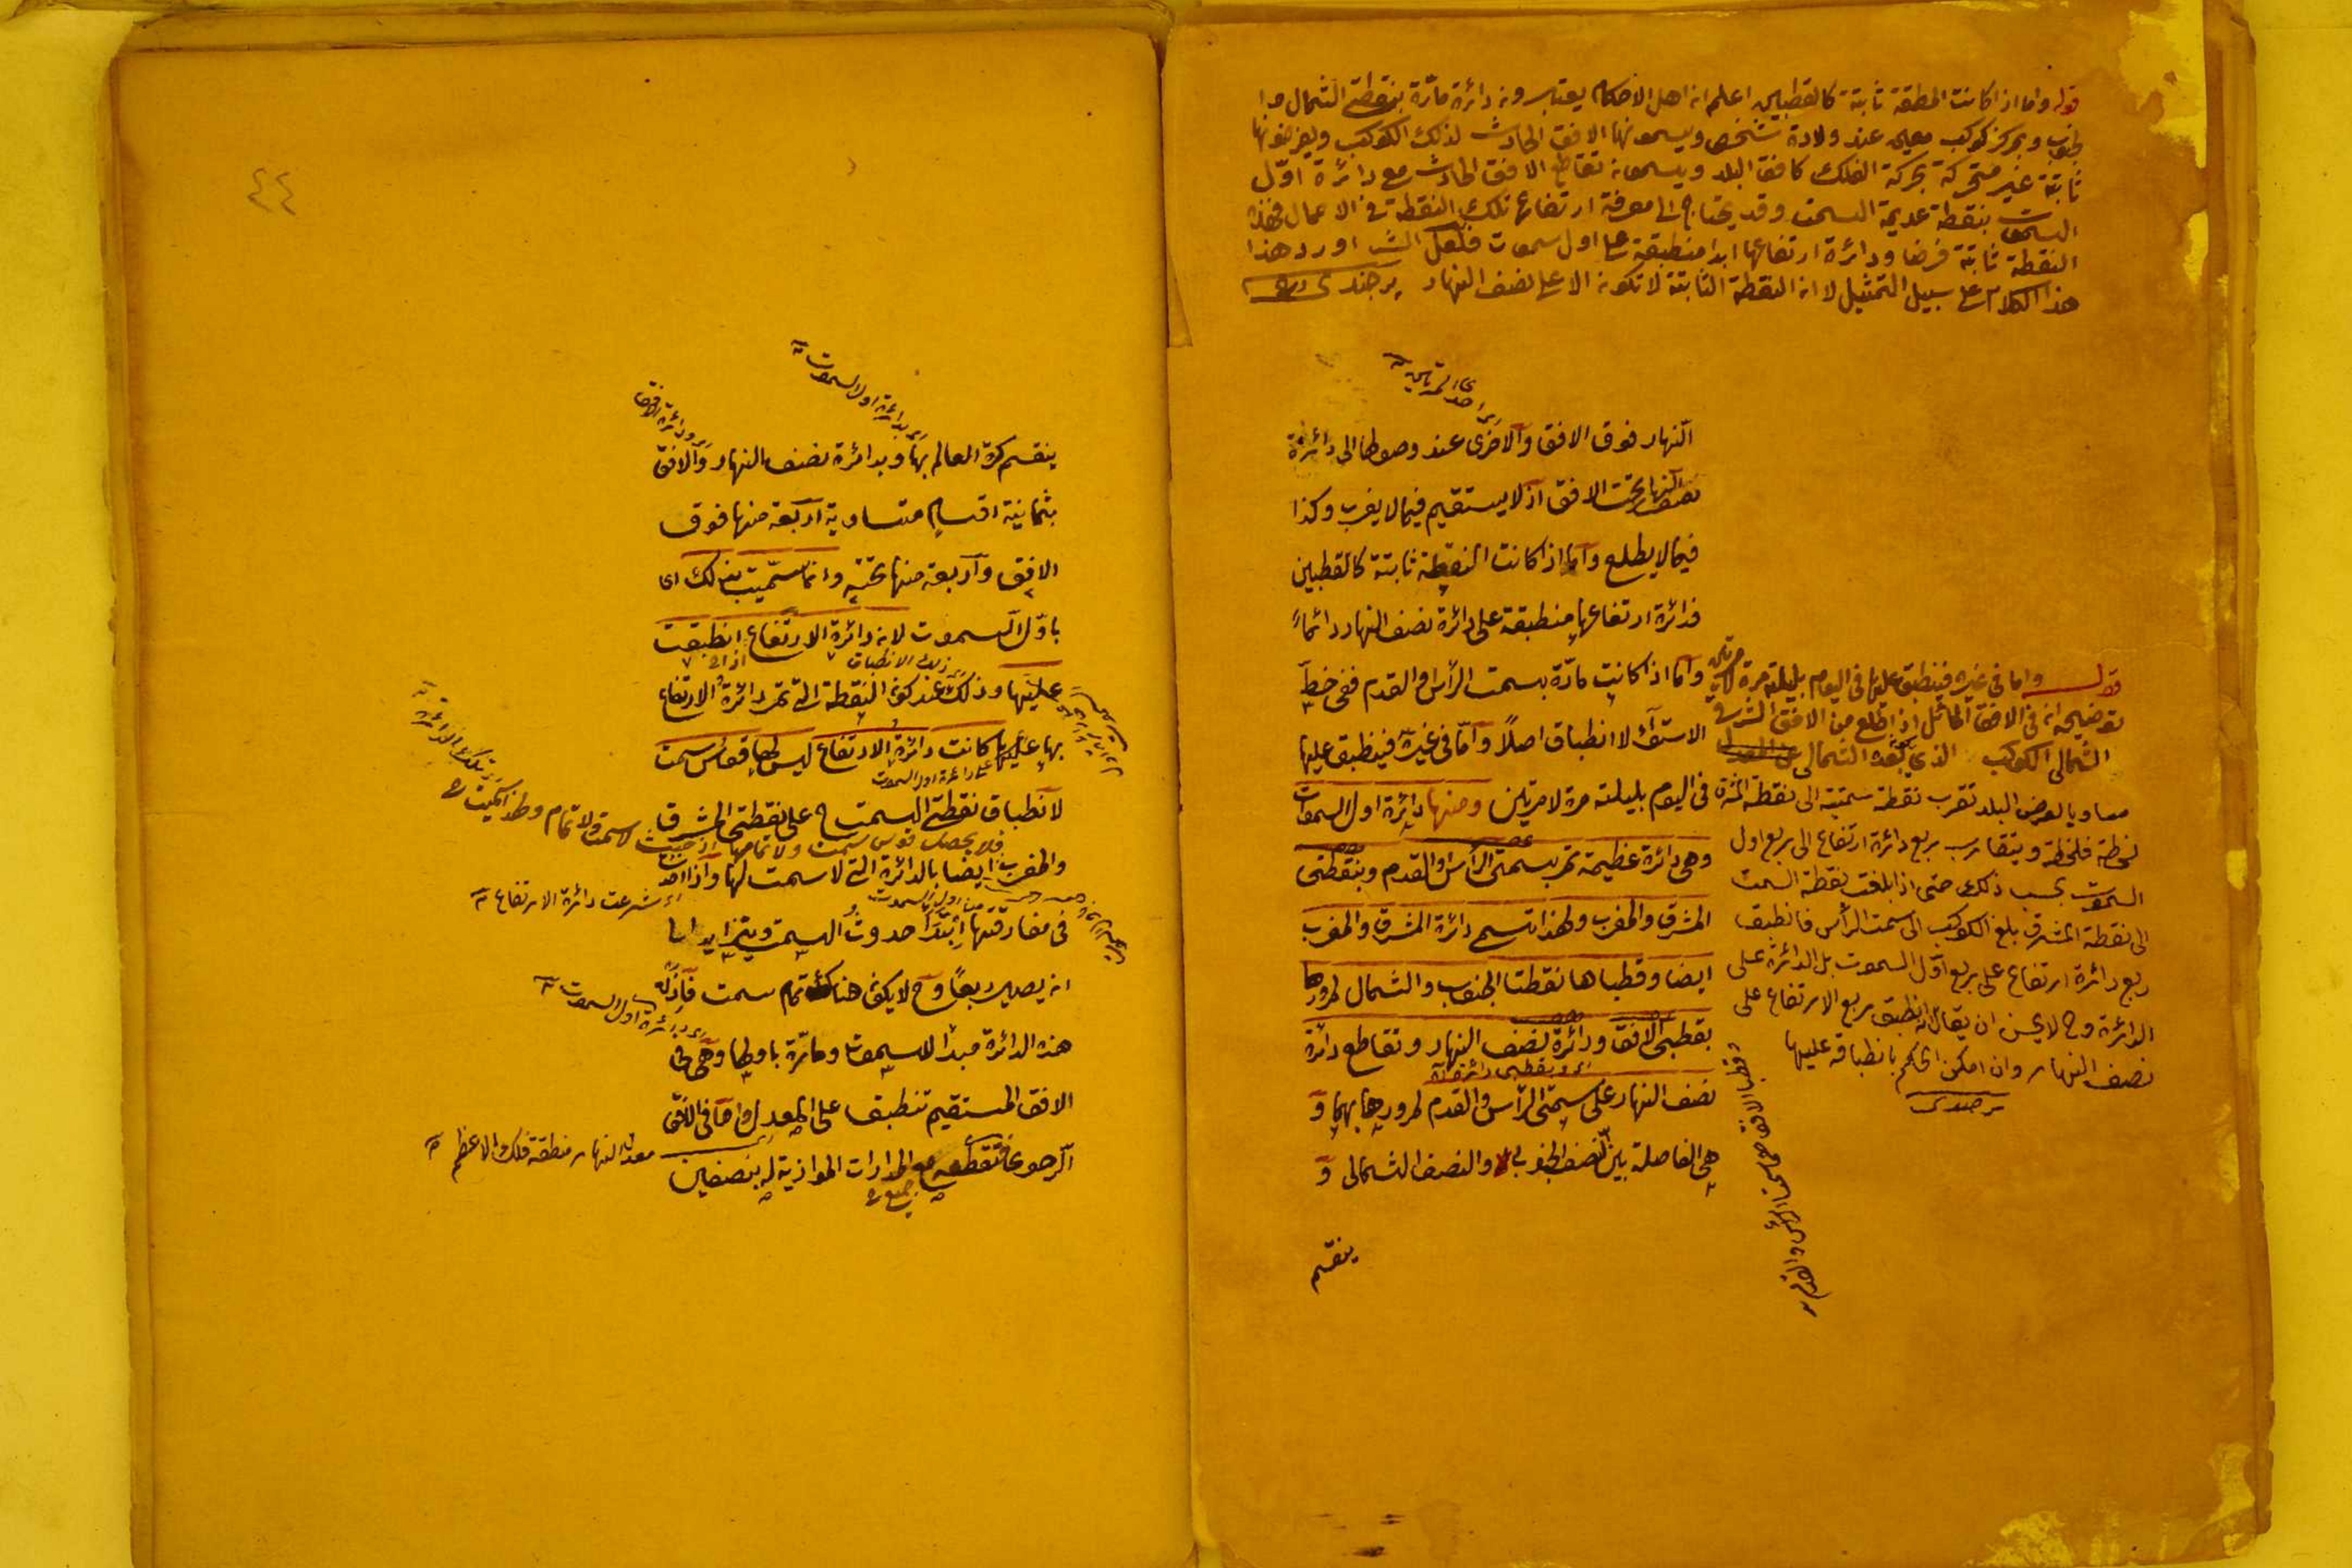 قوله واما اذا كانت المنطقة ثابتة كالقطبين اعلم ان اهل الاحكام يعتبرون دائرة مارة بنقطتي الشمال وا
لجنوب وبمركز كوكب معين عند ولادة شخص ويسمونها الافق الحادث لذلك الكوكب ويفرضونها
ثابتة غير متحركة بحركة الفلك كافق البلد ويسمون تقاطع الافق الحادث مع دائرة اول
السموت بنقطة عديمة السمت وقد يحتاج الى معرفة ارتفاع تلك النقطة في الاعمال فهذه
النقطة ثابتة فرضا ودائرة ارتفاعها ابدا منطبقة على اول سموت فلعل الش اورد هذا
هذا الكلام على سبيل التمثيل لا ان النقطة الثابتة لا تكون الا على نصف النهار برجندى
النهار فوق الافق والاخرى عند وصولها الى دائرة
نصف النهار تحت الافق اذ لا يستقيم فيما لا يغرب وكذا
فيما لا يطلع واما اذا كانت النقطة ثابتة كالقطبين
فدائرة ارتفاعها منطبقة على دائرة نصف النهار دائما
واما اذا كانت مارة بسمت الرأس والقدم ففى خط
الاستواء لا انطباق اصلا واما فى غيره فينطبق عليها
فى اليوم بليلته مرة لا مرتين ومنها دائرة اول السموت
وهى دائرة عظيمة تمر بسمتى الرأس والقدم وبنقطتى
المشرق والمغرب ولهذا تسمى دائرة المشرق والمغرب
ايضا وقطباها نقطتا الجنوب والشمال لمرورها
بقطبى الافق ودائرة نصف النهار وتقاطع دائرة
اى وبقطبى دائرة
نصف النهار على سمتى الرأس والقدم لمرورها بهما و
هى الفاصلة بين النصف الجنوبى والنصف الشمالى و
ينقسم
قوله واما فى غيره فينطبق عليها فى اليوم بليلته مرة لا مرتين
توضيحه انه فى الافق المائل اذا طلع من الافق الشرقى
الشمالى الكوكب الذى بعده الشمالى
مساويا لعرض البلد تقرب نقطة سمتيته الى نقطة المشرق
لحظة فلحظة ويتقارب ربع دائرة ارتفاع الى ربع اول
السموت بحسب ذلك حتى اذا بلغت نقطة السمت
الى نقطة المشرق بلغ الكوكب الى سمت الرأس فانطبق
ربع دائرة ارتفاع على ربع اول السموت بل الدائرة على
الدائرة وح لا يحسن ان يقال انه انطبق ربع الارتفاع على
نصف النهار وان امكن الحكم بانطباقه عليها
برجندى
وقطبا الافق هما سمتا الرأس والقدم
٤٤
اى بدائرة اول السموت
اى ودائرة الافق
ينقسم كرة العالم بها وبدائرة نصف النهار والافق
بثمانية اقسام متساوية اربعة منها فوق
الافق واربعة منها تحته وانما سميت بذلك اى
باول السموت لان دائرة الارتفاع اذا انطبقت
اى ذلك الانطباق
عليها وذلك عند كون النقطة التى تمر دائرة الارتفاع
بها عليها كانت دائرة الارتفاع ليس لها قوس سمت
على دائرة اول السموت
لانطباق نقطتى السمت ح على نقطتى المشرق
فلا يحصل قوس سمت ولا تمامها
والمغرب ايضا بالدائرة التى لا سمت لها واذا اخذت
اى شرعت دائرة الارتفاع
فى مفارقتها ابتدا حدوث السمت ويتزايد الى
ان يصير ربعا وح لا يكون هناك تمام سمت فاذن
اى دائرة اول السموت
هذه الدائرة مبدأ للسموت ومارة باولها وهى فى
الافق المستقيم تنطبق على المعدل واما فى الافق
معدل النهار منطقة فلك الاعظم
الرحوى فتقطعه مع المدارات الموازية له بنصفين
جميع